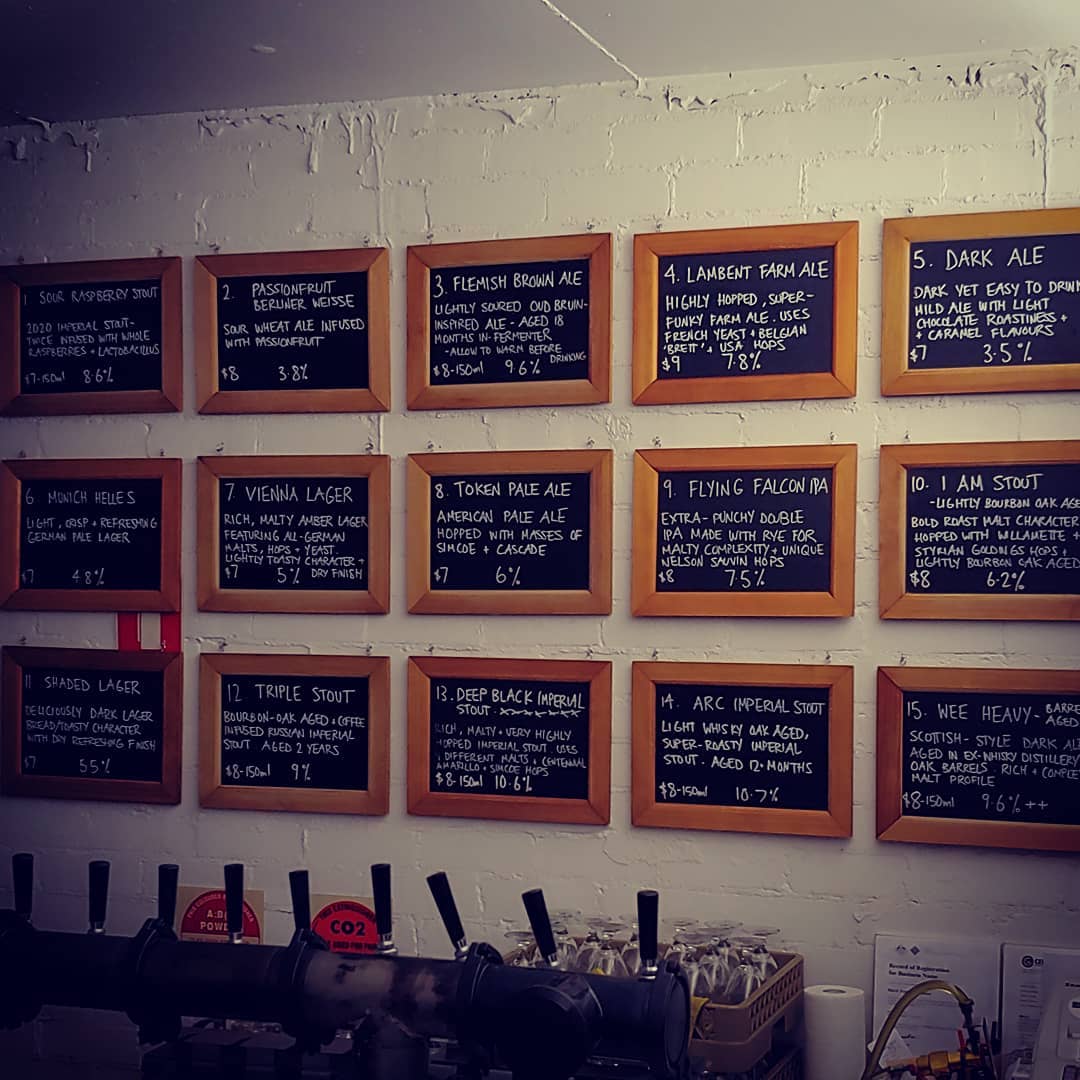 1 SOUR RASPBERRY STOUT
2020 IMPERIAL STOUT-
TWICE INFUSED WITH WHOLE
RASPBERRIES + LACTOBACILLUS
$7-150ml 8.6%
2. PASSIONFRUIT
BERLINER WEISSE
SOUR WHEAT ALE INFUSED
WITH PASSIONFRUIT
$8 3.8%
3. FLEMISH BROWN ALE
LIGHTLY SOURED OUD BRUIN-
INSPIRED ALE - AGED 18
MONTHS IN-FERMENTER
-ALLOW TO WARM BEFORE
DRINKING
$8-150ml 9.6%
4. LAMBENT FARM ALE
HIGHLY HOPPED, SUPER-
FUNKY FARM ALE. USES
FRENCH YEAST + BELGIAN
'BRETT' + USA HOPS
$9 7.8%
5. DARK ALE
DARK YET EASY TO DRINK
MILD ALE WITH LIGHT
CHOCOLATE ROASTINESS +
+ CARAMEL FLAVOURS
$7 3.5%
6 MUNICH HELLES
LIGHT, CRISP + REFRESHING
GERMAN PALE LAGER
$7 4.8%
7. VIENNA LAGER
RICH, MALTY AMBER LAGER
FEATURING ALL-GERMAN
MALTS, HOPS + YEAST.
LIGHTLY TOASTY CHARACTER +
$7 5% DRY FINISH
8. TOKEN PALE ALE
AMERICAN PALE ALE
HOPPED WITH MASSES OF
SIMCOE + CASCADE
$7 6%
9. FLYING FALCON IPA
EXTRA-PUNCHY DOUBLE
IPA MADE WITH RYE FOR
MALTY COMPLEXITY + UNIQUE
NELSON SAUVIN HOPS
$8 7.5%
10. I AM STOUT
-LIGHTLY BOURBON OAK AGED
BOLD ROAST MALT CHARACTER
HOPPED WITH WILLAMETTE +
STYRIAN GOLDINGS HOPS +
LIGHTLY BOURBON OAK AGED
$8 6.2%
11 SHADED LAGER
DELICIOUSLY DARK LAGER
BREAD/TOASTY CHARACTER
WITH DRY REFRESHING FINISH
$7 5.5%
12 TRIPLE STOUT
BOURBON-OAK AGED + COFFEE
INFUSED RUSSIAN IMPERIAL
STOUT AGED 2 YEARS
$8-150ml 9%
13. DEEP BLACK IMPERIAL
STOUT.
RICH, MALTY + VERY HIGHLY
HOPPED IMPERIAL STOUT. USES
DIFFERENT MALTS + CENTENNIAL
AMARILLO + SIMCOE HOPS
$8-150ml 10.6%
14. ARC IMPERIAL STOUT
LIGHT WHISKY OAK AGED,
SUPER-ROASTY IMPERIAL
STOUT. AGED 12+ MONTHS
$8-150ml 10.7%
15. WEE HEAVY- BARREL
AGED
SCOTTISH-STYLE DARK ALE
AGED IN EX-WHISKY DISTILLERY
OAK BARRELS. RICH + COMPLEX
MALT PROFILE
$8-150ml 9.6%++
A:B(
POWD
CO2
Record of Registration
for Business Name